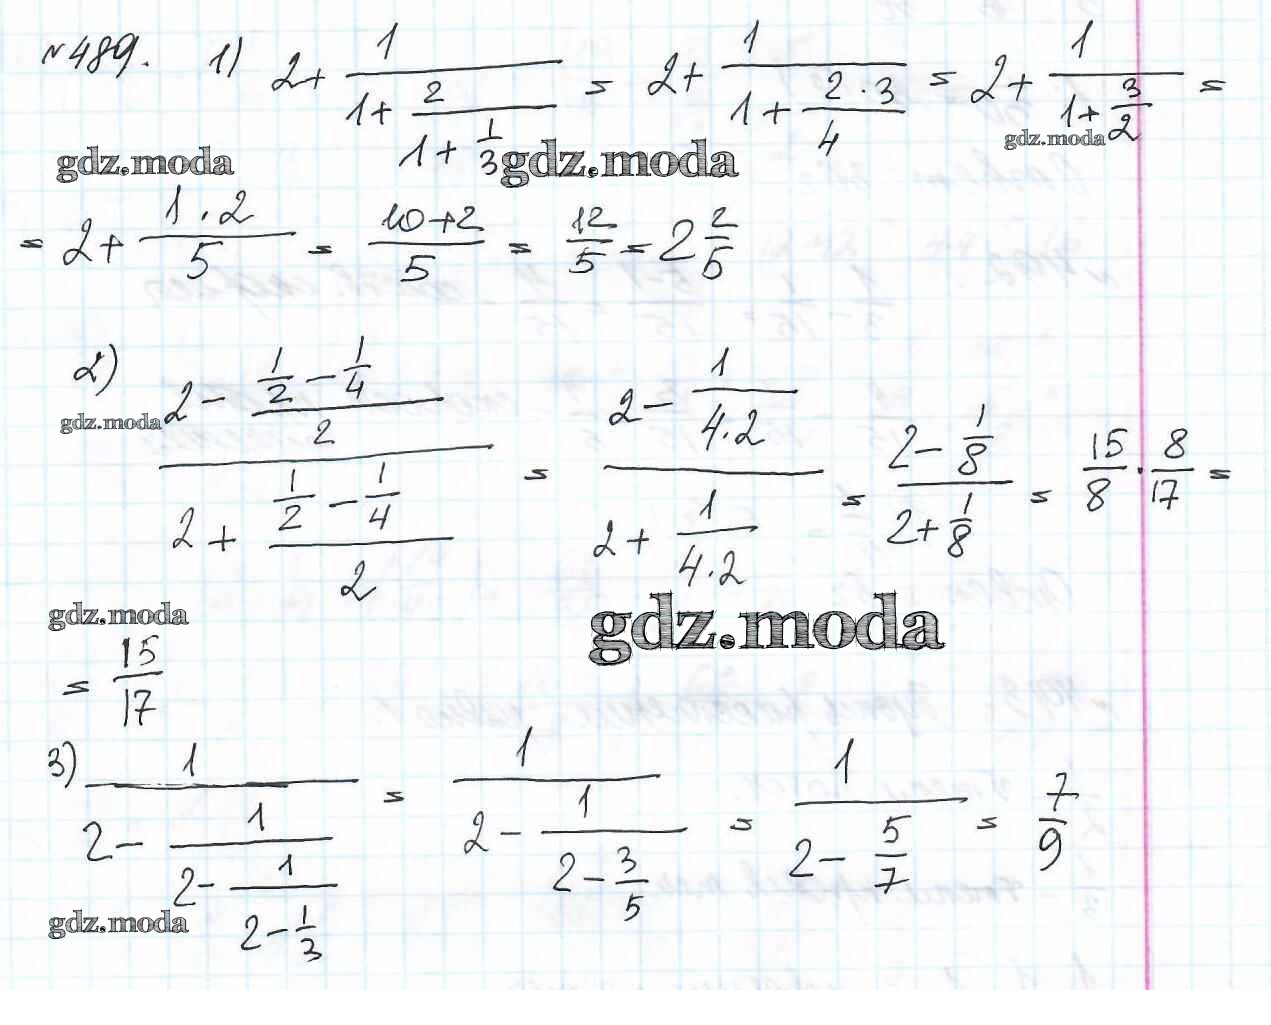 №489. 1) 2+ 1/(1+ 2/(1+ 1/3)) = 2+ 1/(1+ (2·3)/4) = 2+ 1/(1+ 3/2) =
gdz.moda gdz.moda gdz.moda
= 2+ (1·2)/5 = (10+2)/5 = 12/5 = 2 2/5
2) (2 - (1/2 - 1/4)/2)/(2 + (1/2 - 1/4)/2) = (2 - 1/(4·2))/(2 + 1/(4·2)) = (2 - 1/8)/(2 + 1/8) = 15/8 · 8/17 =
gdz.moda
gdz.moda gdz.moda
= 15/17
3) 1/(2 - 1/(2 - 1/(2 - 1/3))) = 1/(2 - 1/(2 - 3/5)) = 1/(2 - 5/7) = 7/9
gdz.moda